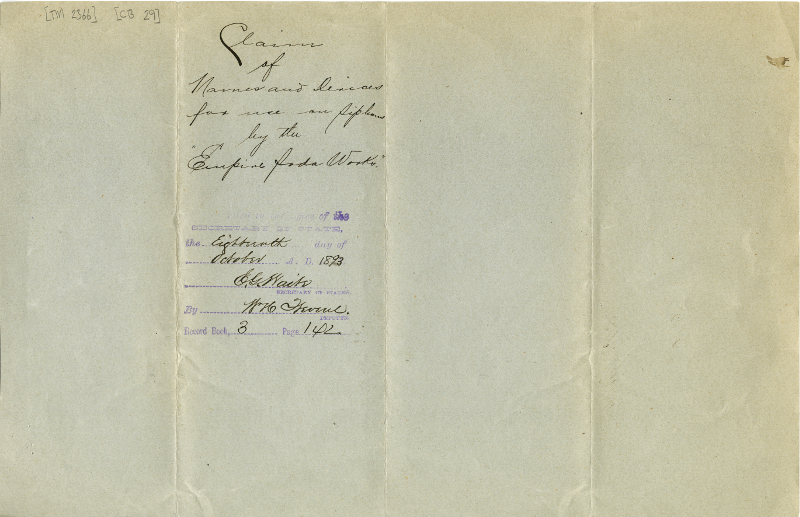 [TM 2366] [CB 29]
Claim
of
Names and Devices
for use on Siphons
by the
"Empire Soda Works."
of the
SECRETARY OF STATE,
the Eighteenth day of
October A. D. 1893
E.G. Waite
SECRETARY OF STATE.
By W.H.
DEPUTY.
Record Book, 3 Page 142